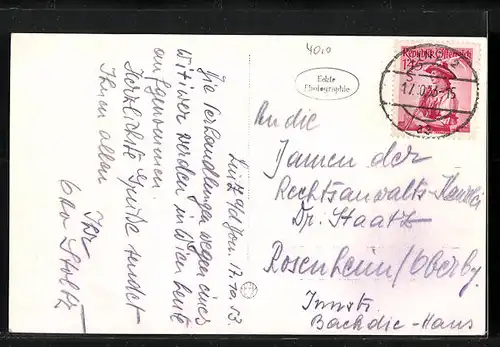 4010
Echte
Photographie
REPUBLIK Österreich
17.10.53-15
Linz a/d Don. 17.10.53.
Die Verhandlungen wegen einer
Witwer werden in Wien heute
aufgenommen.
Herzlichste Grüße sendet
Ihnen allen
Ihr
An die
Damen der
Rechtsanwalts-Kanzlei
Dr. Staatz
Rosenheim/Oberby.
Innstr.